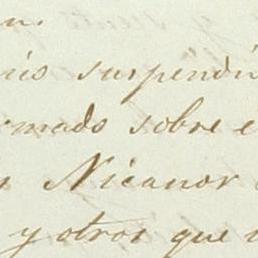 n.
suspendi
rmado sobre e
Nicanor
y otros que